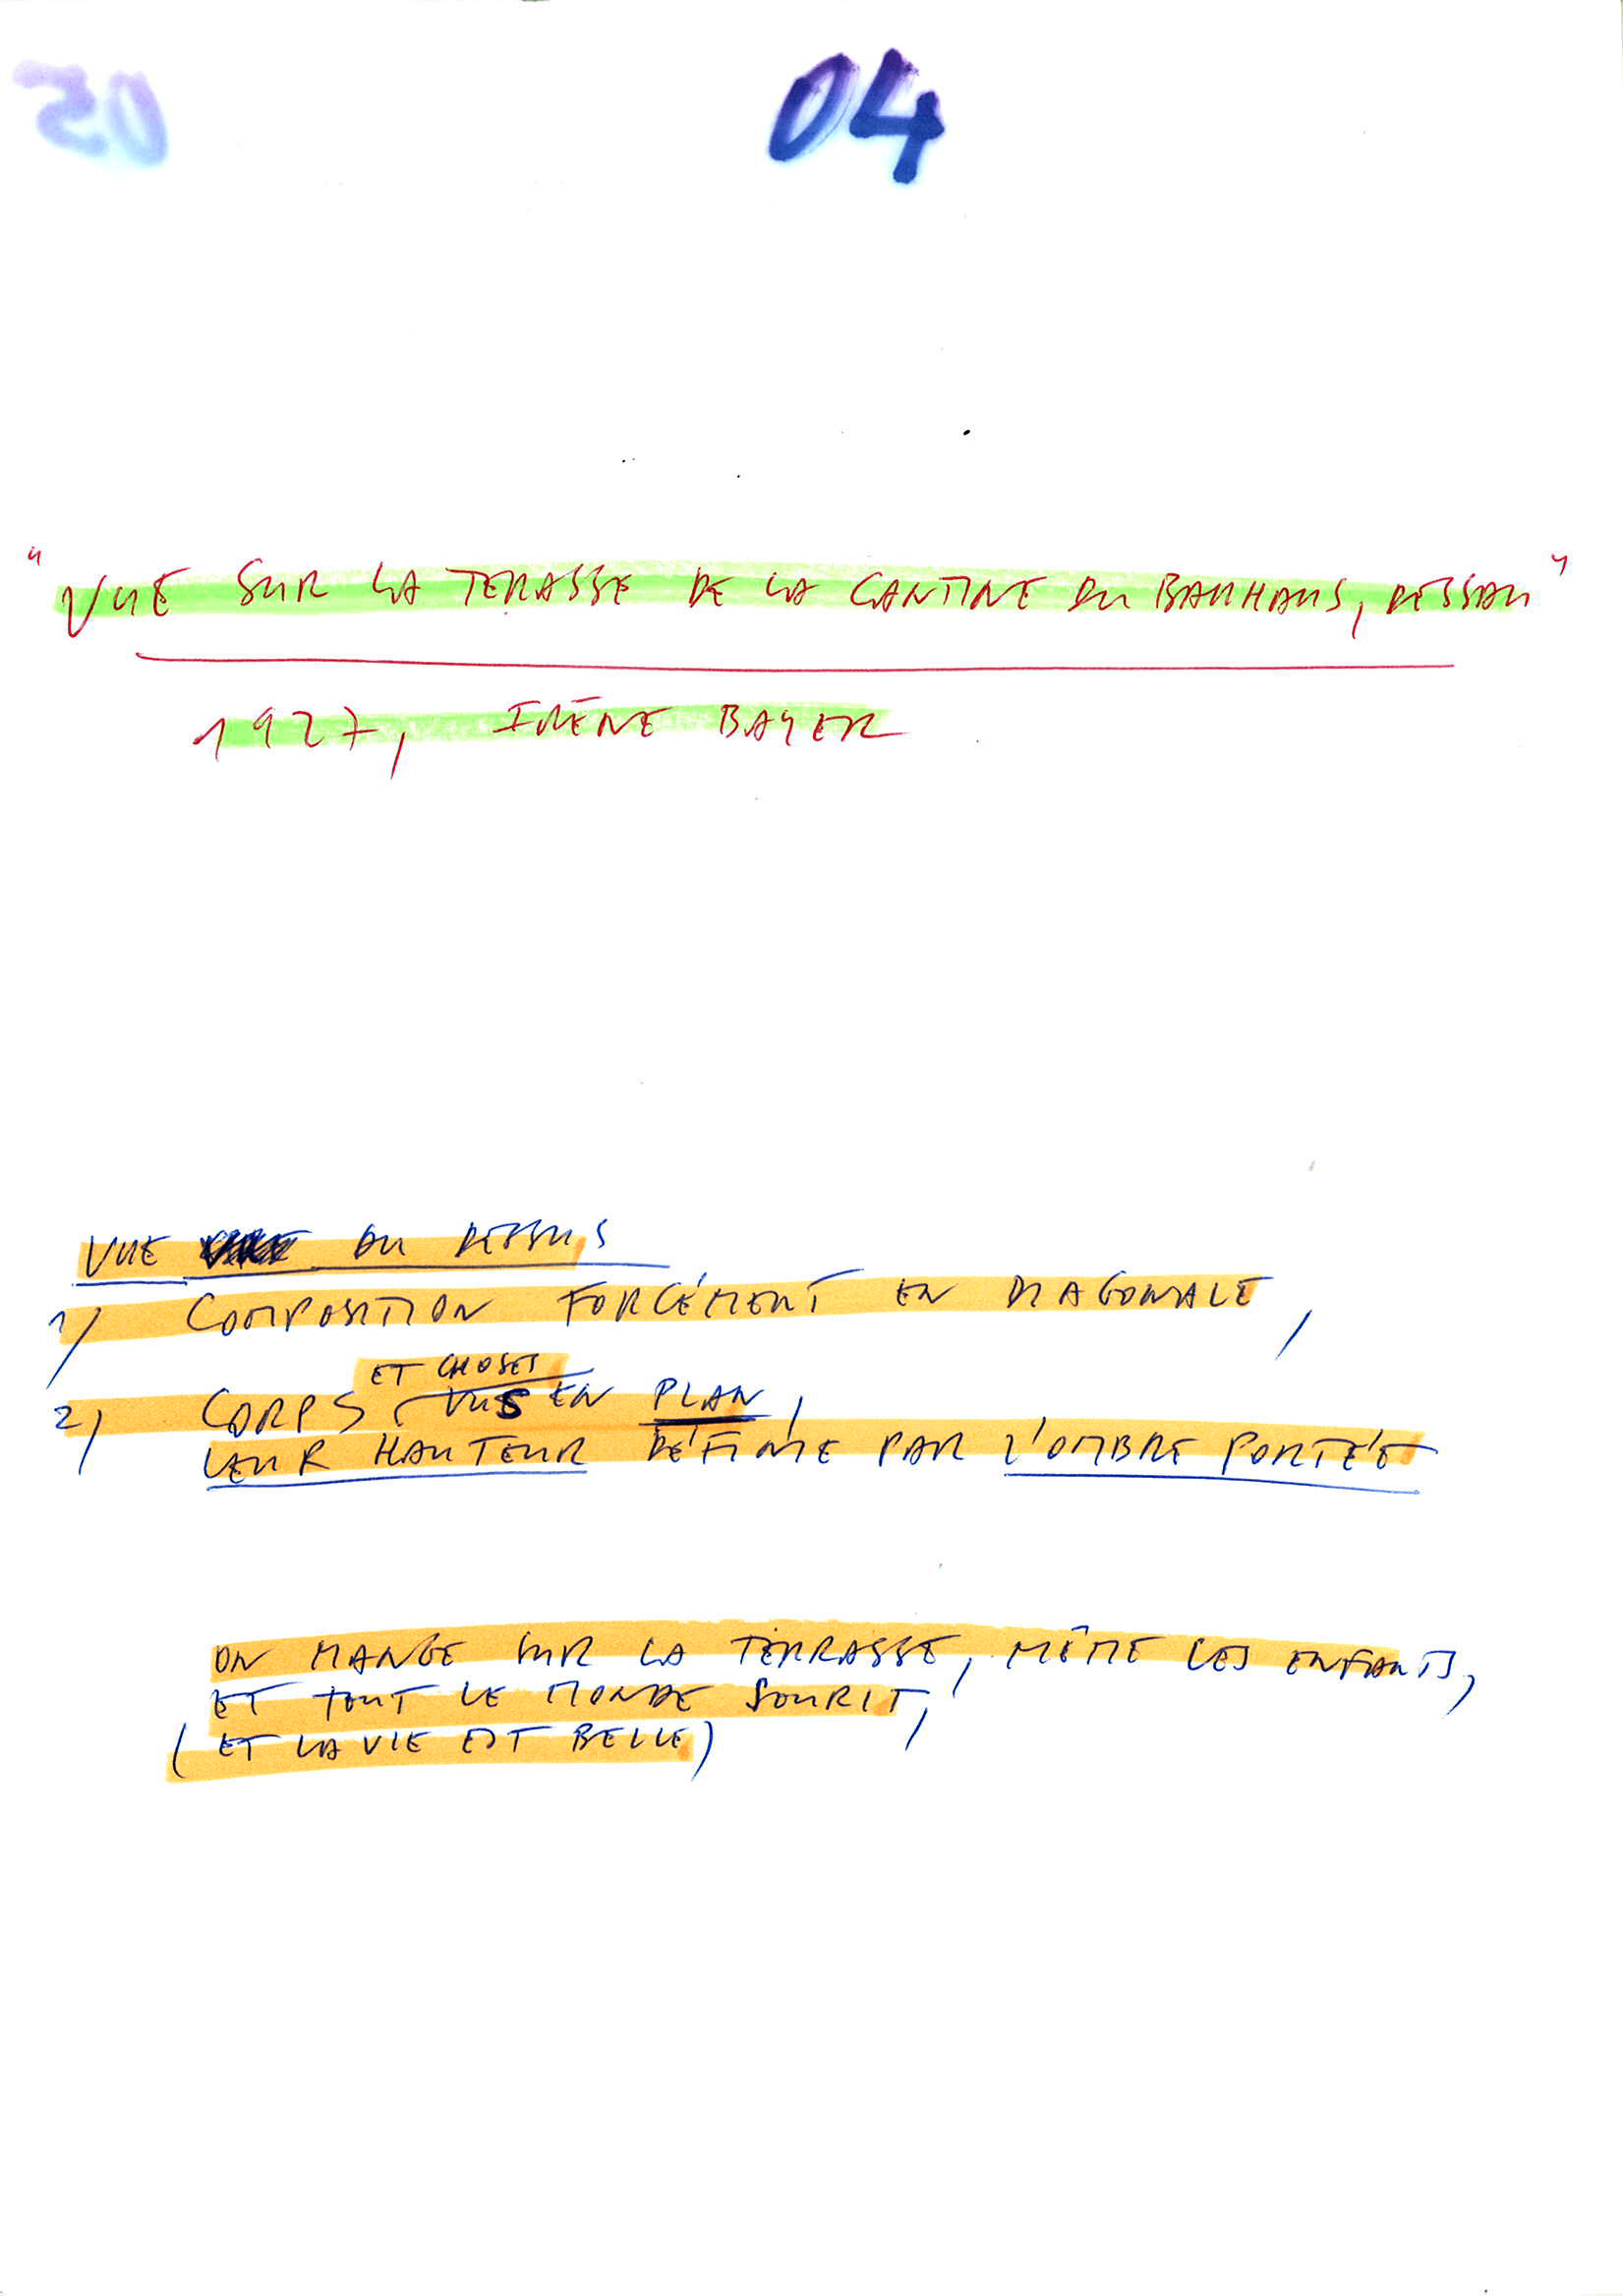 04
"VUE SUR LA TERASSE DE LA CANTINE DU BAUHAUS, DESSAU"
1927, IRÈNE BAYER
VUE DU DESSUS
1) COMPOSITION FORCÉMENT EN DIAGONALE,
ET CHOSES
2) CORPS VUS EN PLAN,
LEUR HAUTEUR DÉFINIE PAR L'OMBRE PORTÉE
ON MANGE SUR LA TERRASSE, MÊME LES ENFANTS,
ET TOUT LE MONDE SOURIT,
(ET LA VIE EST BELLE)